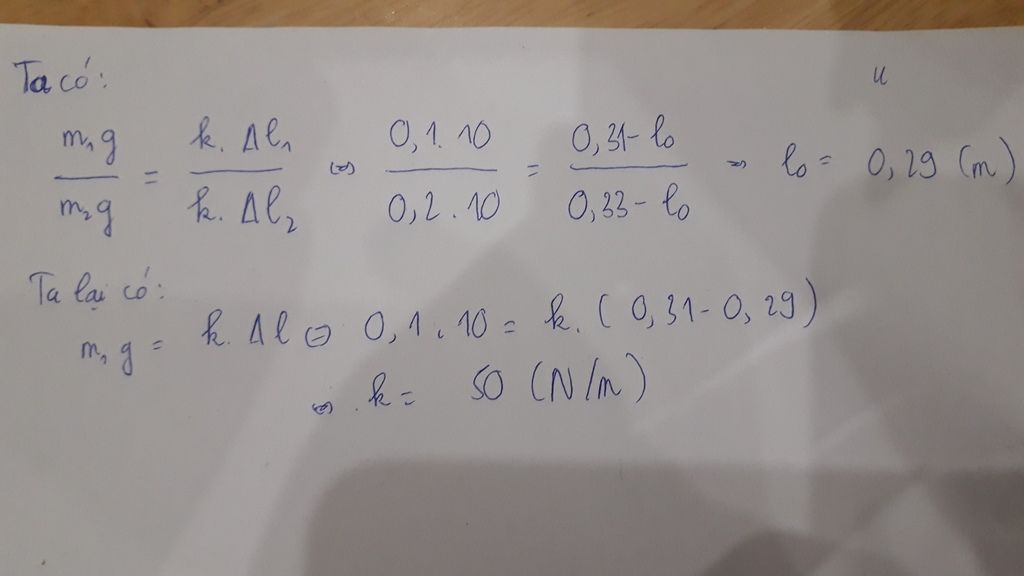 Ta có:
u
m₁g / m₂g = k. Δl₁ / k. Δl₂ ⇔ 0,1. 10 / 0,2. 10 = 0,31 - l₀ / 0,33 - l₀ ⇒ l₀ = 0,29 (m)
Ta lại có:
m₁g = k. Δl ⇔ 0,1. 10 = k. (0,31 - 0,29)
⇔ k = 50 (N/m)